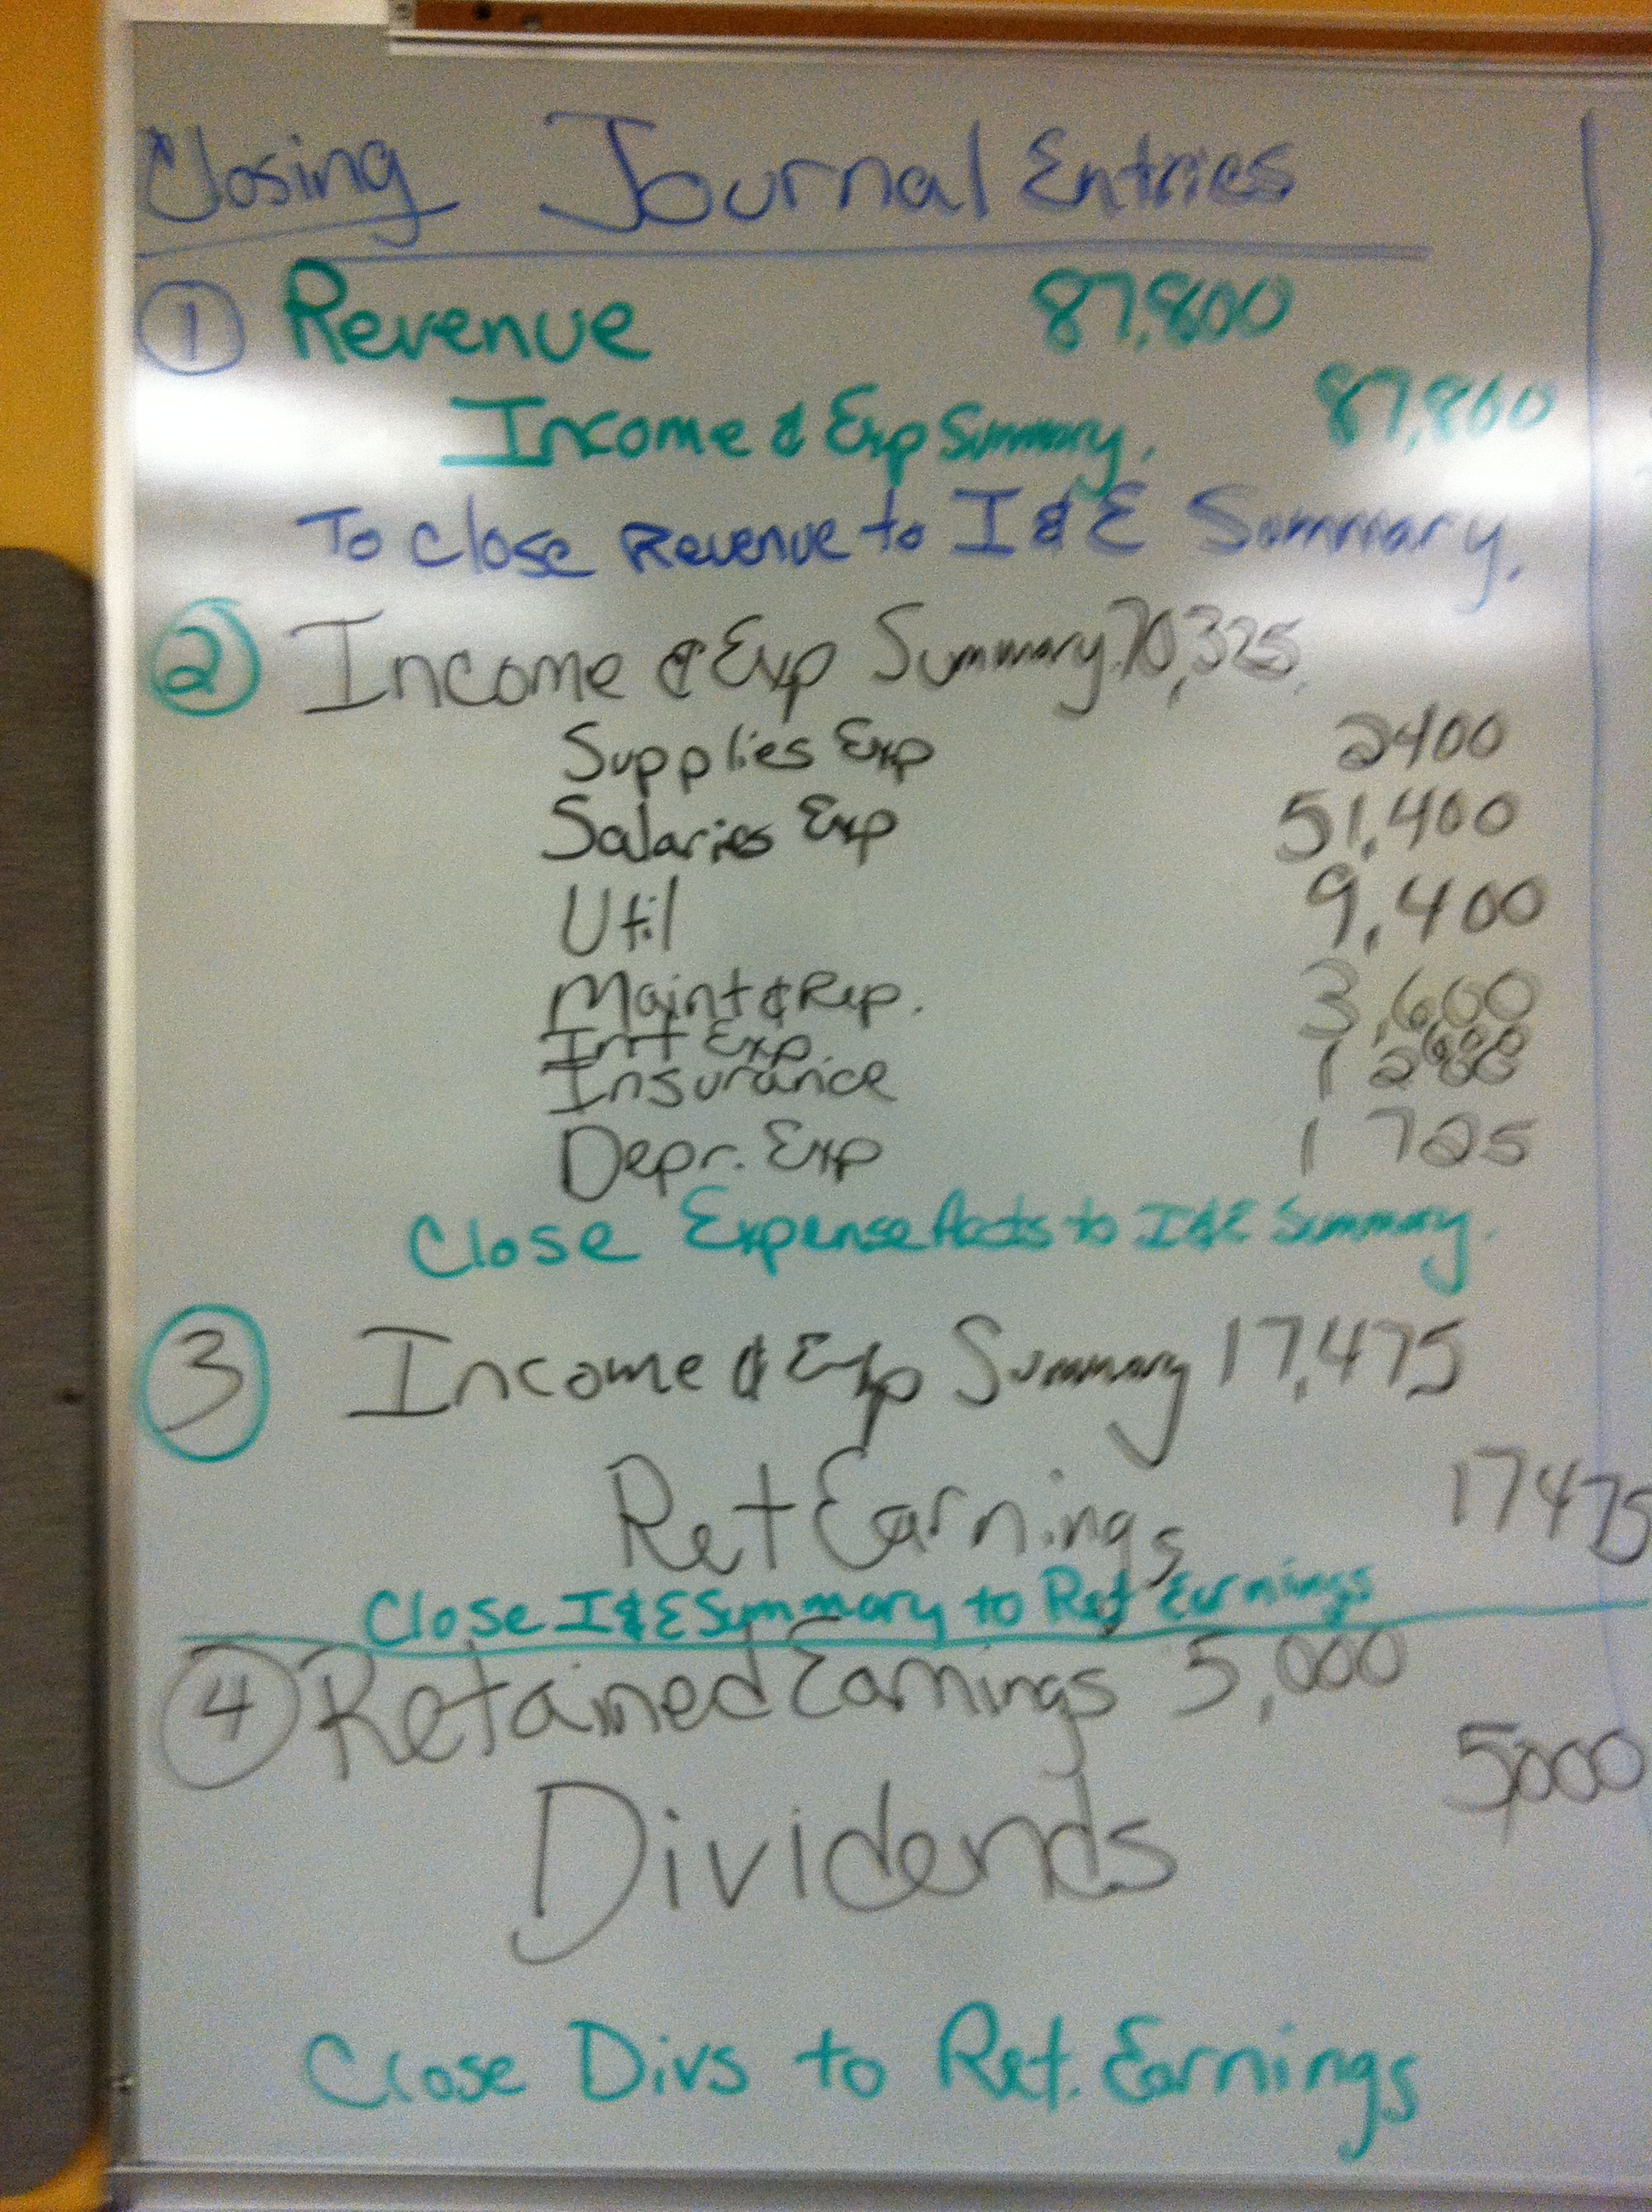 Closing Journal Entries
1 Revenue 87,800
Income & Exp Summary. 87,800
To Close Revenue to I & E Summary.
2 Income & Exp Summary. 70,325
Supplies Exp 2400
Salaries Exp 51,400
Util 9,400
Maint & Rep. 3,600
Int Exp. 600
Insurance 1 200
Depr. Exp 1 725
Close Expense Accts to I & E Summary.
3 Income & Exp Summary 17,475
Ret Earnings 17475
Close I & E Summary to Ret Earnings
4 Retained Earnings 5,000
Dividends 5,000
Close Divs to Ret. Earnings